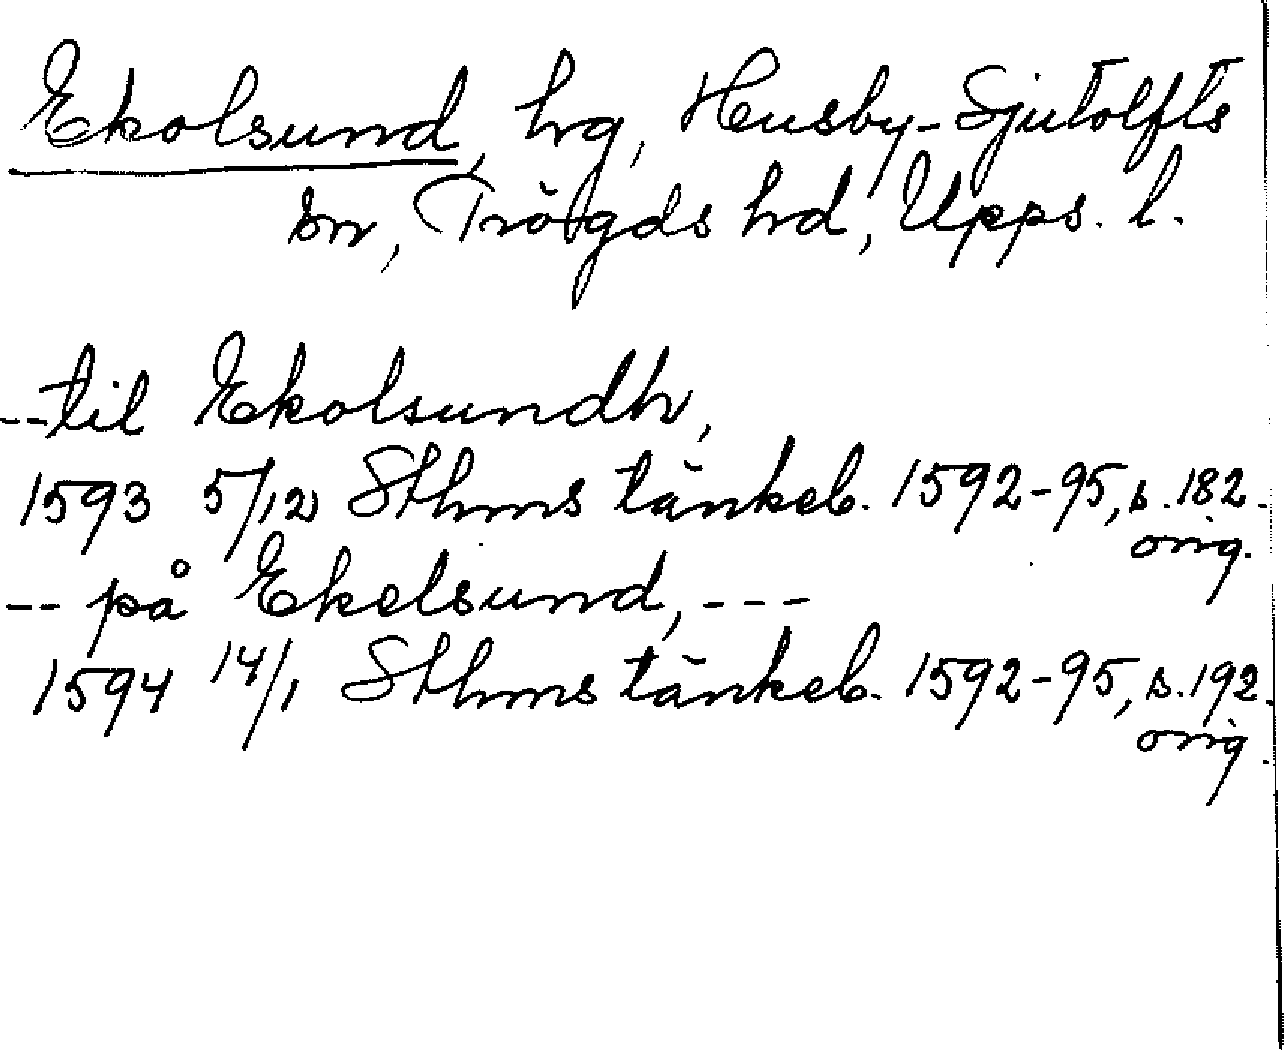 Ekolsund, hg, Husby-Sjutolfts
sn, Trögds hd, Upps. l.
-- til Ekolsundh,
1593 5/12 Sthms tänkeb. 1592-95, s. 182.
orig.
-- på Ekelsund, ---
1594 14/1 Sthms tänkeb. 1592-95, s. 192.
orig.